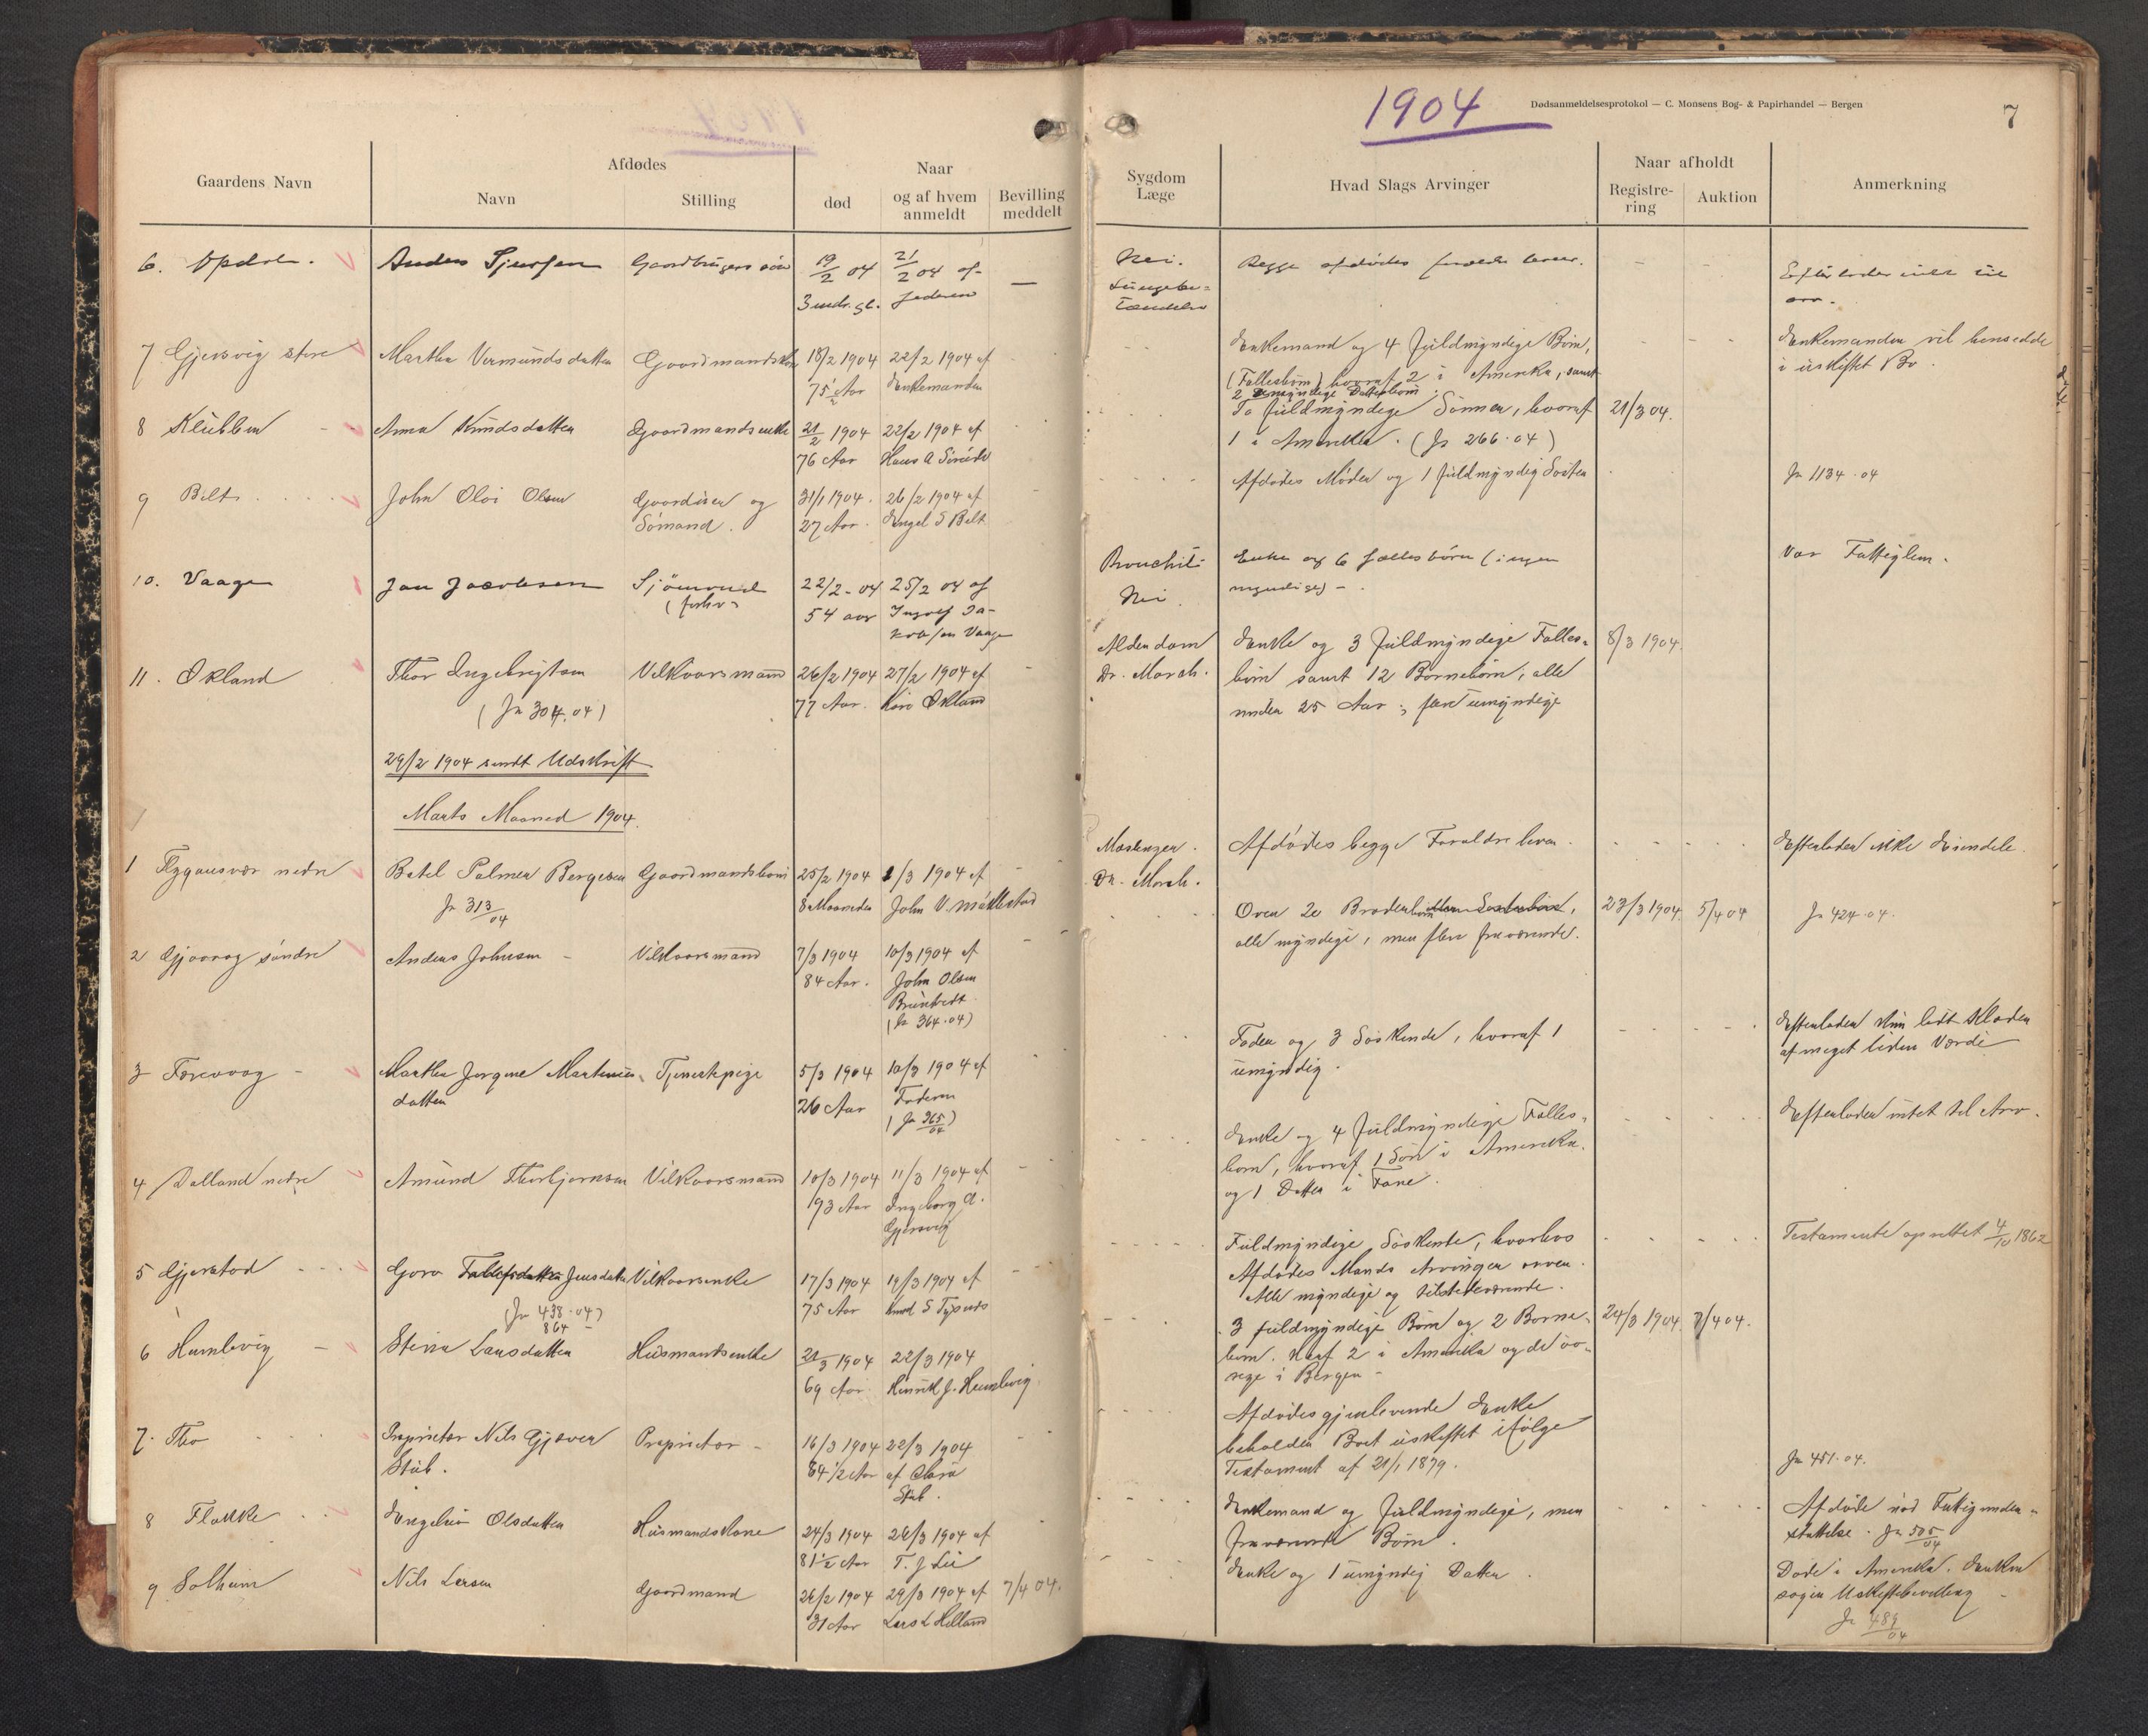 1904
Dødsanmeldelsesprotokol — C. Monsens Bog- & Papirhandel — Bergen
7
Gaardens Navn
Afdødes
Navn
Stilling
Naar
død
og af hvem anmeldt
Bevilling meddelt
Sygdom Læge
Hvad Slags Arvinger
Naar afholdt
Registrering
Auktion
Anmerkning
6. Opdal. Anders Sjursen Gaardbrugers søn 19/2 04 21/2 04 af
3 mdr. gl. faderen —
Nei. Begge afdødes forældre lever. - - Efterlader intet til
Lungebe=
tændelse arv.
7 Gjersvig store Martha Vermundsdatter Gaardmandskone 18/2 1904 22/2 1904 af
75 1/2 Aar Enkemanden
Enkemand og 4 fuldmyndige Børn,
(Fællesbørn) hvoraf 2 i Amerika, samt
2 umyndige Datterbørn
Enkemanden vil hensidde
i uskiftet Bo.
8 Klubben Anna Knudsdatter Gaardmandsenke 21/2 1904 22/2 1904 af
76 Aar Hans A
To fuldmyndige Sønner, hvoraf 21/3 04.
1 i Amerika. (Jr 266.04)
9 Belt John Oloi Olsen Gaardiser og 31/1 1904. 26/2 1904 af
Sømand. 27 Aar. Engel S Belt
Afdødes Moder og 1 fuldmyndig Søster Jr 1134.04
10. Vaage Jan Jacobsen Sjømand 22/2-04 25/2 04 af
(forhv 54 aar Ingolf Ja-
kobsen Vaage
Bronchit- Enke og 6 fællesbørn (ingen Var Fattiglem.
Nei. myndige) -
11. Økland Thor Ingebrigtsen Vilkaarsmand 26/2 1904 27/2 1904 af
(Jr 304.04) 77 Aar. Økland
Alderdom Enke og 3 fuldmyndige Fælles- 8/3 1904.
Dr. Morch. børn samt 12 Børnebørn, alle
under 25 Aar; flere umyndige
29/2 1904 sendt Udskrift
Marts Maaned 1904.
1 Flygansvær nedre Batel Palmer Bergesen Gaardmandsbarn 25/2 1904 1/3 1904 af
Jr 313/04 8 Maaneder John V.
Mæslinger. Afdødes begge Forældre lever. Efterlader ikke Eiendele.
Dr. Morch.
2 Gjøvaag søndre Anders Johnsen - Vilkaarsmand 7/3 1904 10/3 1904 af
84 Aar. John Olsen
(Jr 364.04)
Over 20 Broderbørn 23/3 1904. 5/4 04 Jr 424.04.
alle myndige, men flere fraværende.
3 Færevaag - Martha Jorgine Martinus- Tjenestepige 5/3 1904 10/3 1904 af
datter 26 Aar Faderen
(Jr 365/04)
Fader og 3 Søskende, hvoraf 1
umyndig.
Efterlader kun lidt Klæder
af meget liden Værdi
4 Dalland nedre Amund Thorbjørnsen Vilkaarsmand 10/3 1904 11/3 1904 af
93 Aar Ingeborg A.
Gjersvig
Enke og 4 fuldmyndige Fælles-
børn, hvoraf 1 Søn i Amerika
og 1 Datter i Fane.
Efterlader intet til Arv.
5 Gjerstad Guro Jensdatter Vilkaarsenke 17/3 1904 19/3 1904 af
(Jr 438.04) 75 Aar Knud S Tysnes
864 -
Fuldmyndige Søskende, hvorhos
Afdødes Mands Arvinger arver.
Alle myndige og tilstedeværende.
Testamente oprettet 4/10 1862
6 Humlevig - Larsdatter Husmandsenke 21/3 1904 22/3 1904
69 Aar. Henrik J. Humlevig.
3 fuldmyndige Børn og 2 Børne- 24/3 1904. 7/4 04.
børn. Heraf 2 i Amerika og de øv-
rige i Bergen -
7. Tho Proprietær Nils Gjæver Proprietær - 16/3 1904 22/3 1904
Stub. 84 1/2 Aar af Clara
Stub.
Afdødes gjenlevende Enke
beholder Boet uskiftet ifølge
Testament af 21/1 1879.
Jr 451.04.
8 Flakke Engelein Olsdatter Husmandskone 24/3 1904 26/3 1904 af
81 1/2 Aar T. J Lie
Enkemand og fuldmyndige, men
fraværende Børn.
Afdøde nød Fattigunder-
støttelse. Jr 505/04
9 Solheim Nils Larsen Gaardmand 26/2 1904 29/3 1904 af 7/4 04.
31 Aar Lars L Helland
Enke og 1 umyndig Datter.
Døde i Amerika. Enken
søger Uskiftebevilling -
Jr 489/04